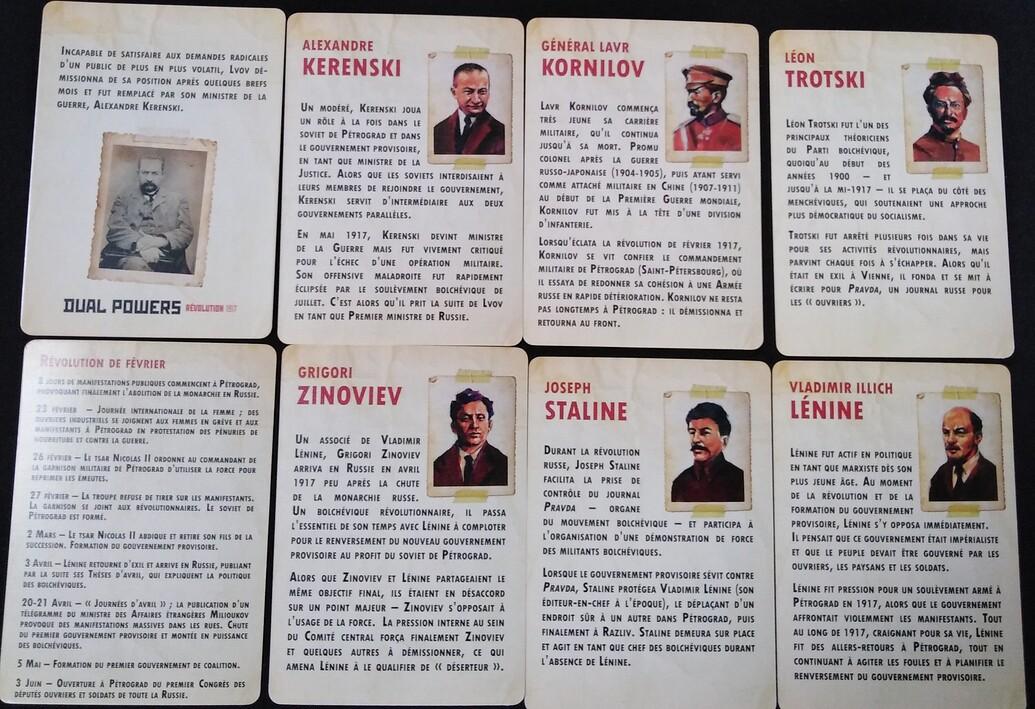 Incapable de satisfaire aux demandes radicales
d'un public de plus en plus volatil, Lvov dé-
missionna de sa position après quelques brefs
mois et fut remplacé par son ministre de la
guerre, Alexandre Kerenski.
DUAL POWERS RÉVOLUTION 1917
ALEXANDRE
KERENSKI
Un modéré, Kerenski joua
un rôle à la fois dans le
soviet de Pétrograd et dans
le gouvernement provisoire,
en tant que ministre de la
Justice. Alors que les soviets interdisaient à
leurs membres de rejoindre le gouvernement,
Kerenski servit d'intermédiaire aux deux
gouvernements parallèles.
En mai 1917, Kerenski devint ministre
de la Guerre mais fut vivement critiqué
pour l'échec d'une opération militaire.
Son offensive maladroite fut rapidement
éclipsée par le soulèvement bolchévique de
juillet. C'est alors qu'il prit la suite de Lvov
en tant que Premier ministre de Russie.
GÉNÉRAL LAVR
KORNILOV
Lavr Kornilov commença
très jeune sa carrière
militaire, qu'il continua
jusqu'à sa mort. Promu
colonel après la guerre
russo-japonaise (1904-1905), puis ayant servi
comme attaché militaire en Chine (1907-1911)
au début de la Première Guerre mondiale,
Kornilov fut mis à la tête d'une division
d'infanterie.
Lorsqu'éclata la révolution de février 1917,
Kornilov se vit confier le commandement
militaire de Pétrograd (Saint-Pétersbourg), où
il essaya de redonner sa cohésion à une Armée
russe en rapide détérioration. Kornilov ne resta
pas longtemps à Pétrograd : il démissionna et
retourna au front.
LÉON
TROTSKI
Léon Trotski fut l'un des
principaux théoriciens
du Parti bolchévique,
quoiqu'au début des
années 1900 — et
jusqu'à la mi-1917 — il se plaça du côté des
menchéviques, qui soutenaient une approche
plus démocratique du socialisme.
Trotski fut arrêté plusieurs fois dans sa vie
pour ses activités révolutionnaires, mais
parvint chaque fois à s'échapper. Alors qu'il
était en exil à Vienne, il fonda et se mit à
écrire pour Pravda, un journal russe pour
les « ouvriers ».
Révolution de février
8 jours de manifestations publiques commencent à Pétrograd,
provoquant finalement l'abolition de la monarchie en Russie.
23 février — Journée internationale de la femme ; des
ouvriers industriels se joignent aux femmes en grève et aux
manifestants à Pétrograd en protestation des pénuries de
nourriture et contre la guerre.
26 février — Le tsar Nicolas II ordonne au commandant de
la garnison militaire de Pétrograd d'utiliser la force pour
réprimer les émeutes.
27 février — La troupe refuse de tirer sur les manifestants.
La garnison se joint aux révolutionnaires. Le soviet de
Pétrograd est formé.
2 Mars — Le tsar Nicolas II abdique et retire son fils de la
succession. Formation du gouvernement provisoire.
3 Avril — Lénine retourne d'exil et arrive en Russie, publiant
par la suite ses Thèses d'avril, qui expliquent la politique
des bolchéviques.
20-21 Avril — « Journées d'avril » ; la publication d'un
télégramme du ministre des Affaires étrangères Milioukov
provoque des manifestations massives dans les rues. Chute
du premier gouvernement provisoire et montée en puissance
des bolchéviques.
5 Mai — Formation du premier gouvernement de coalition.
3 Juin — Ouverture à Pétrograd du premier Congrès des
députés ouvriers et soldats de toute la Russie.
GRIGORI
ZINOVIEV
Un associé de Vladimir
Lénine, Grigori Zinoviev
arriva en Russie en avril
1917 peu après la chute
de la monarchie russe.
Un bolchévique révolutionnaire, il passa
l'essentiel de son temps avec Lénine à comploter
pour le renversement du nouveau gouvernement
provisoire au profit du soviet de Pétrograd.
Alors que Zinoviev et Lénine partageaient le
même objectif final, ils étaient en désaccord
sur un point majeur — Zinoviev s'opposait à
l'usage de la force. La pression interne au sein
du Comité central força finalement Zinoviev
et quelques autres à démissionner, ce qui
amena Lénine à le qualifier de « déserteur ».
JOSEPH
STALINE
Durant la révolution
russe, Joseph Staline
facilita la prise de
contrôle du journal
Pravda — organe
du mouvement bolchévique — et participa à
l'organisation d'une démonstration de force
des militants bolchéviques.
Lorsque le gouvernement provisoire sévit contre
Pravda, Staline protégea Vladimir Lénine (son
éditeur-en-chef à l'époque), le déplaçant d'un
endroit sûr à un autre dans Pétrograd, puis
finalement à Razliv. Staline demeura sur place
et agit en tant que chef des bolchéviques durant
l'absence de Lénine.
VLADIMIR ILLICH
LÉNINE
Lénine fut actif en politique
en tant que marxiste dès son
plus jeune âge. Au moment
de la révolution et de la
formation du gouvernement
provisoire, Lénine s'y opposa immédiatement.
Il pensait que ce gouvernement était impérialiste
et que le peuple devait être gouverné par les
ouvriers, les paysans et les soldats.
Lénine fit pression pour un soulèvement armé à
Pétrograd en 1917, alors que le gouvernement
affrontait violemment les manifestants. Tout
au long de 1917, craignant pour sa vie, Lénine
fit des allers-retours à Pétrograd, tout en
continuant à agiter les foules et à planifier le
renversement du gouvernement provisoire.